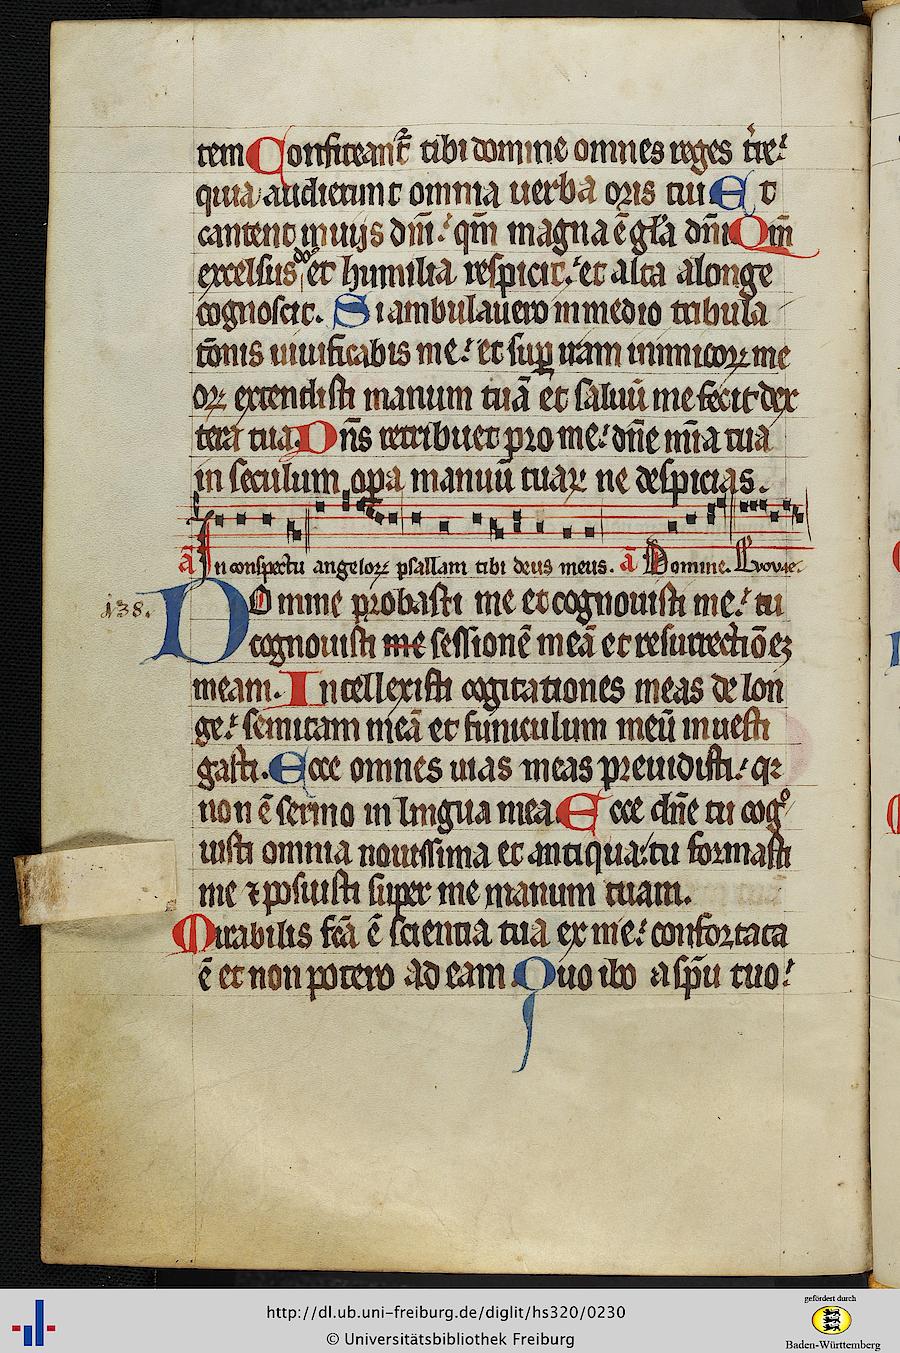 tem Confiteant᷑ tibi domine omnes reges t̄re:
quia audierunt omnia uerba oris tui Et
cantent in uijs dm̄: qm̄ magna ē gl̄a dn̄i Qm̄
excelsus dn̄s et humilia respicit: et alta alonge
cognoscit. Si ambulauero in medio tribula
tōnis uiuificabis me: et suꝑ iram inimicoꝝ me
oꝝ extendisti manum tuā et saluū me fecit dex
tera tua Dn̄s retribuet pro me: dn̄e mīa tua
in seculum opa manuū tuaꝝ ne despicias.
ā In conspectu angeloꝝ psallam tibi deus meus. ā Domine. Euouae.
138.
Domine probasti me et cognouisti me: tu
cognouisti me sessionē meā et resurrectiōēz
meam. Intellexisti cogitationes meas de lon
ge: semitam meā et funiculum meū inuesti
gasti. Ecce omnes uias meas preuidisti: qꝛ
non ē sermo in lingua mea Ecce dn̄e tu cog̊
uisti omnia nouissima et antiqua: tu formasti
me ⁊ posuisti super me manum tuam.
Mirabilis fc̄a ē scientia tua ex me: confortata
ē et non potero ad eam Quo ibo a sp̄u tuo:
http://dl.ub.uni-freiburg.de/diglit/hs320/0230
© Universitätsbibliothek Freiburg
gefördert durch
Baden-Württemberg